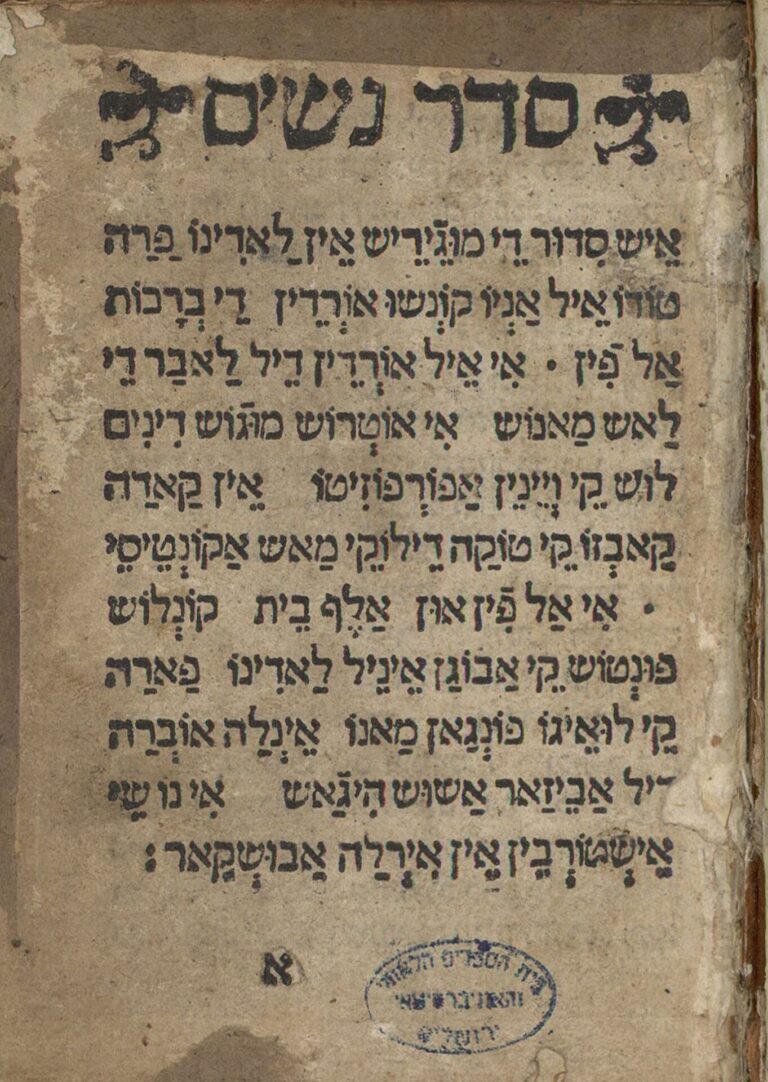 סדר נשים
אֵיש סִדור דֵי מוגֵֿירֵיש אֵין לַאדִינוֹ פַּרַה
טוֹדוֹ אֵיל אַנְיוֹ קוֹנְשוּ אוֹרְדֵין דֵי בְּרָכוֹת
אַל פִֿין · אִי אֵיל אוֹרְדֵין דֵיל לַאבַר דֵי
לַאש מַאנוֹש אִי אוֹטְרוֹש מוּגֿוֹש דִינִים
לוֹש קֵי וְיֵינֵין אַפּוֹרְפּוֹזִיטוֹ אֵין קַאדַה
קַאבְזוֹ קֵי טוֹקַה דֵילוֹקֵי מַאש אַקוֹנְטֵיסֵי
· אִי אַל פִֿין אוּן אַלֶף בֵית קוֹנְלוֹש
פּוּנְטוֹש קֵי אַבוֹגַן אֵינֵיל לַאדִינוֹ פַּארַה
קֵי לוּאֵיגוֹ פּוֹנְגַאן מַאנוֹ אֵינְלַה אוֹבְרַה
דֵיל אַבֵיזַאר אַשוּש הִיגַֿאש אִי נוֹ שֵי
אֵישְטוֹרְבֵין אֵין אִירְלַה אַבוּשְקַאר :
א
בית הספרים הלאומי
והאוניברסיטאי
ירושלים